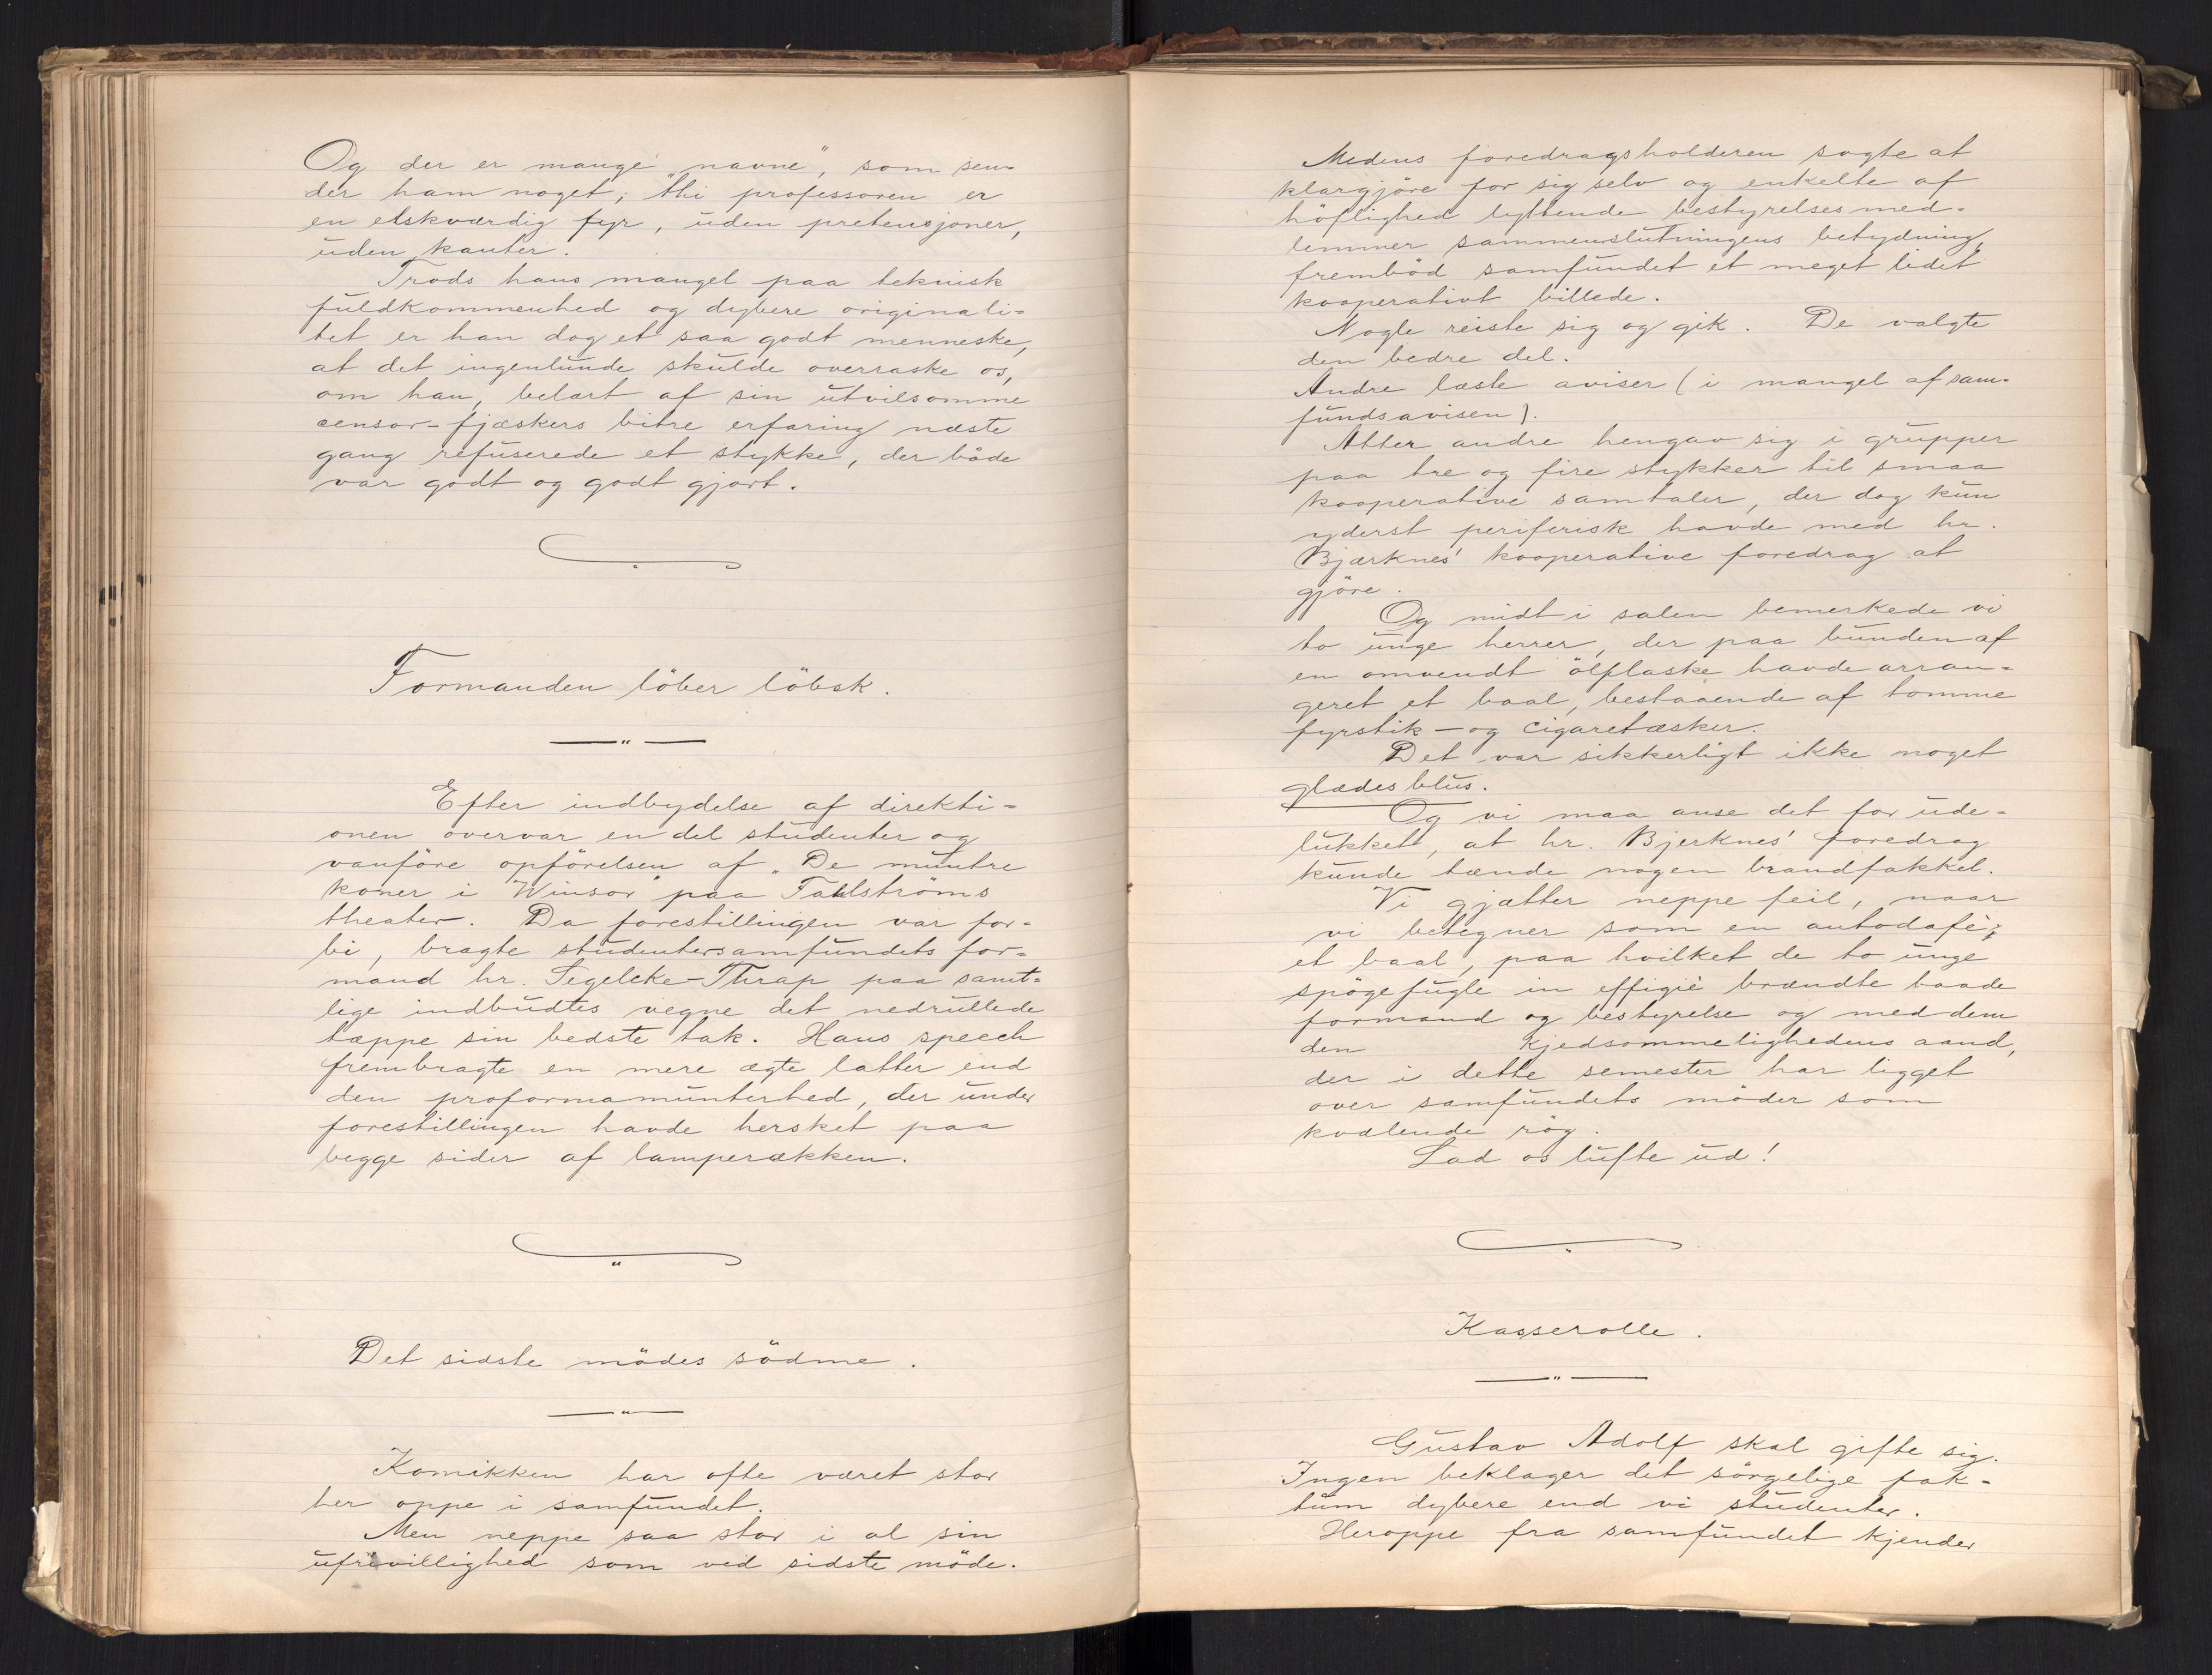 Og der er mange "navne", som sen-
der ham noget; thi professoren er
en elskværdig fyr, uden pretensjoner,
uden kanter.
Trods hans mangel paa teknisk
fuldkommenhed og dybere originali-
tet er han dog et saa godt menneske,
at det ingenlunde skulde overraske os,
om han, belært af sin utvilsomme
censor-fjæskers bitre erfaring næste
gang refuserede et stykke, der både
var godt og godt gjort.
Formanden löber löbsk.
Efter indbydelse af direkti-
onen overvar en del studenter og
vanföre opförelsen af "De muntre
koner i Winsor" paa Fahlströms
theater. Da forestillingen var for-
bi, bragte studentersamfundets for-
mand hr. Segelcke-Thrap paa samt-
lige indbudtes vegne det nedrullede
tæppe sin bedste tak. Hans speech
frembragte en mere ægte latter end
den proformamunterhed, der under
forestillingen havde hersket paa
begge sider af lamperækken.
Det sidste mödes södme.
Komikken har ofte været stor
her oppe i samfundet.
Men neppe saa stor i al sin
ufrivillighed som ved sidste möde.
Medens foredragsholderen sogte at
klargjöre for sig selv og enkelte af
höflighed lyttende bestyrelsesmed-
lemmer sammenslutningens betydning,
fremböd samfundet et meget lidet
kooperativt billede.
Nogle reiste sig og gik. De valgte
den bedre del.
Andre læste aviser (i mangel af sam-
fundsavisen).
Atter andre hengav sig i grupper
paa tre og fire stykker til smaa
kooperative samtaler, der dog kun
yderst periferisk havde med hr.
Bjærknes' kooperative foredrag at
gjöre.
Og midt i salen bemerkede vi
to unge herrer, der paa bunden af
en omvendt ölflaske havde arran-
geret et baal, bestaaende af tomme
fyrstik- og cigaretæsker.
Det var sikkerligt ikke noget
glædesblus.
Og vi maa anse det for ude-
lukket, at hr. Bjerknes' foredrag
kunde tænde nogen brandfakkel.
Vi gjætter neppe feil, naar
vi betegner som en autodafè;
et baal, paa hvilket de to unge
spögefugle in effigiè brændte baade
formand og bestyrelse og med dem
den kjedsommelighedens aand,
der i dette semester har ligget
over samfundets möder som
kvælende rög.
Lad os lufte ud!
Kasserolle.
Gustav Adolf skal gifte sig.
Ingen beklager det sörgelige fak-
tum dybere end vi studenter.
Heroppe fra samfundet kjender